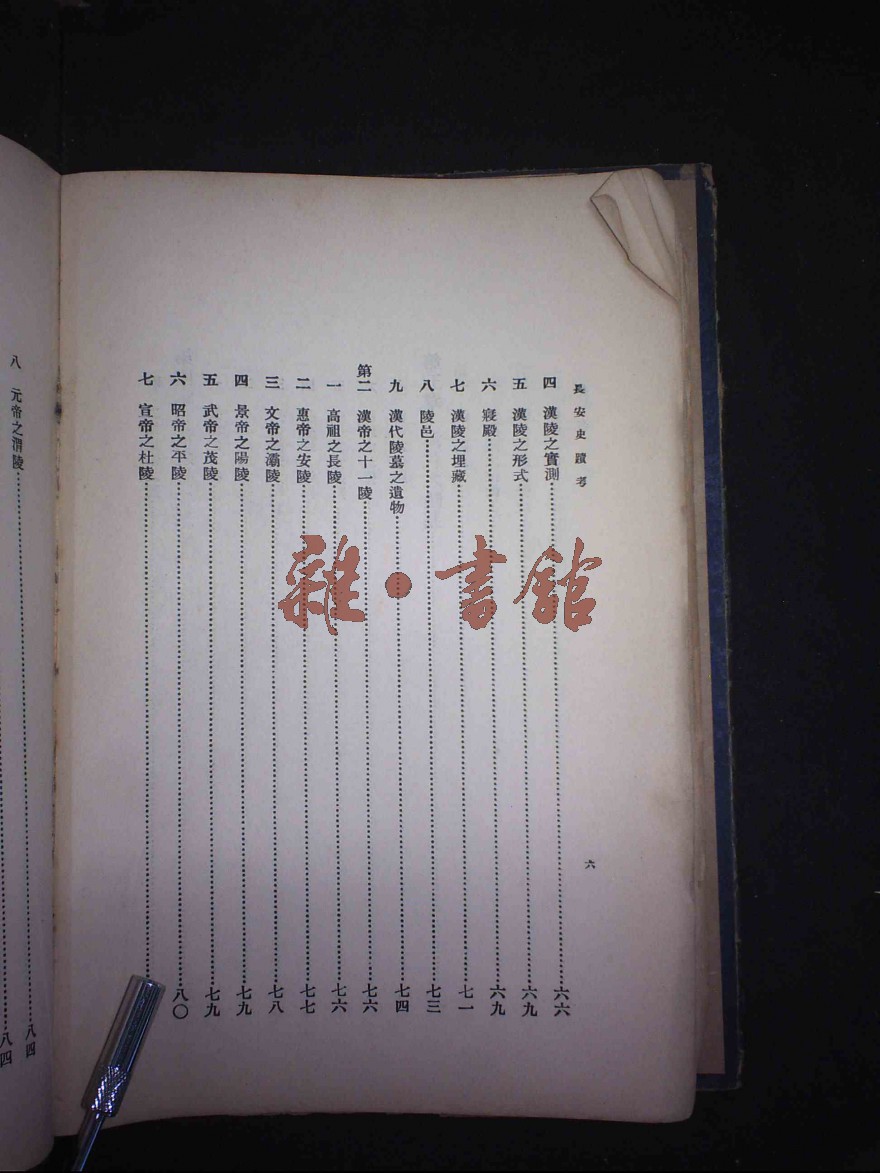 長安史蹟考
六
四　漢陵之實測……六六
五　漢陵之形式……六九
六　寢殿……六九
七　漢陵之埋藏……七一
八　陵邑……七三
九　漢代陵墓之遺物……七四
第二　漢帝之十一陵……七六
一　高祖之長陵……七六
二　惠帝之安陵……七七
三　文帝之灞陵……七八
四　景帝之陽陵……七九
五　武帝之茂陵……七九
六　昭帝之平陵……八〇
七　宣帝之杜陵……
八　元帝之渭陵……八四
八四
雜·書館